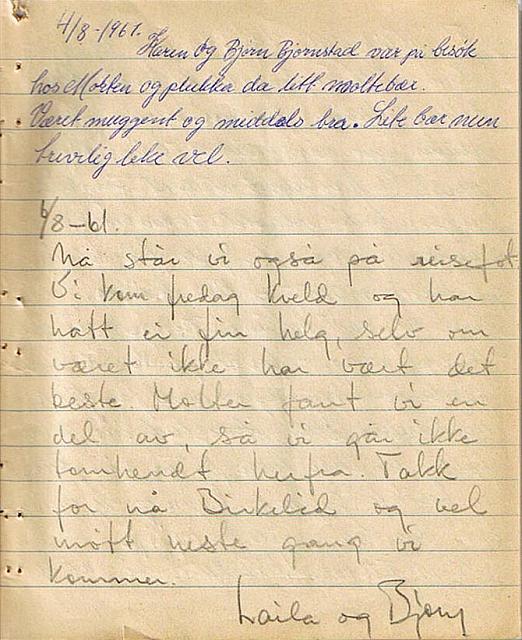 4/8-1961.
Karen og Bjørn Bjørnstad var på besøk
hos Morten og plukka da litt moltebær.
Været muggent og middels bra. Lite bær men
trivelig leke vel.
6/8-61.
Nå står vi også på reisefot
Vi kom fredag kveld og har
hatt ei fin helg, selv om
været ikke har vært det
beste. Molter fant vi en
del av, så vi går ikke
tomhendt herfra. Takk
for nå Birkelid og vel
møtt neste gang vi
kommer.
Laila og Bjørn